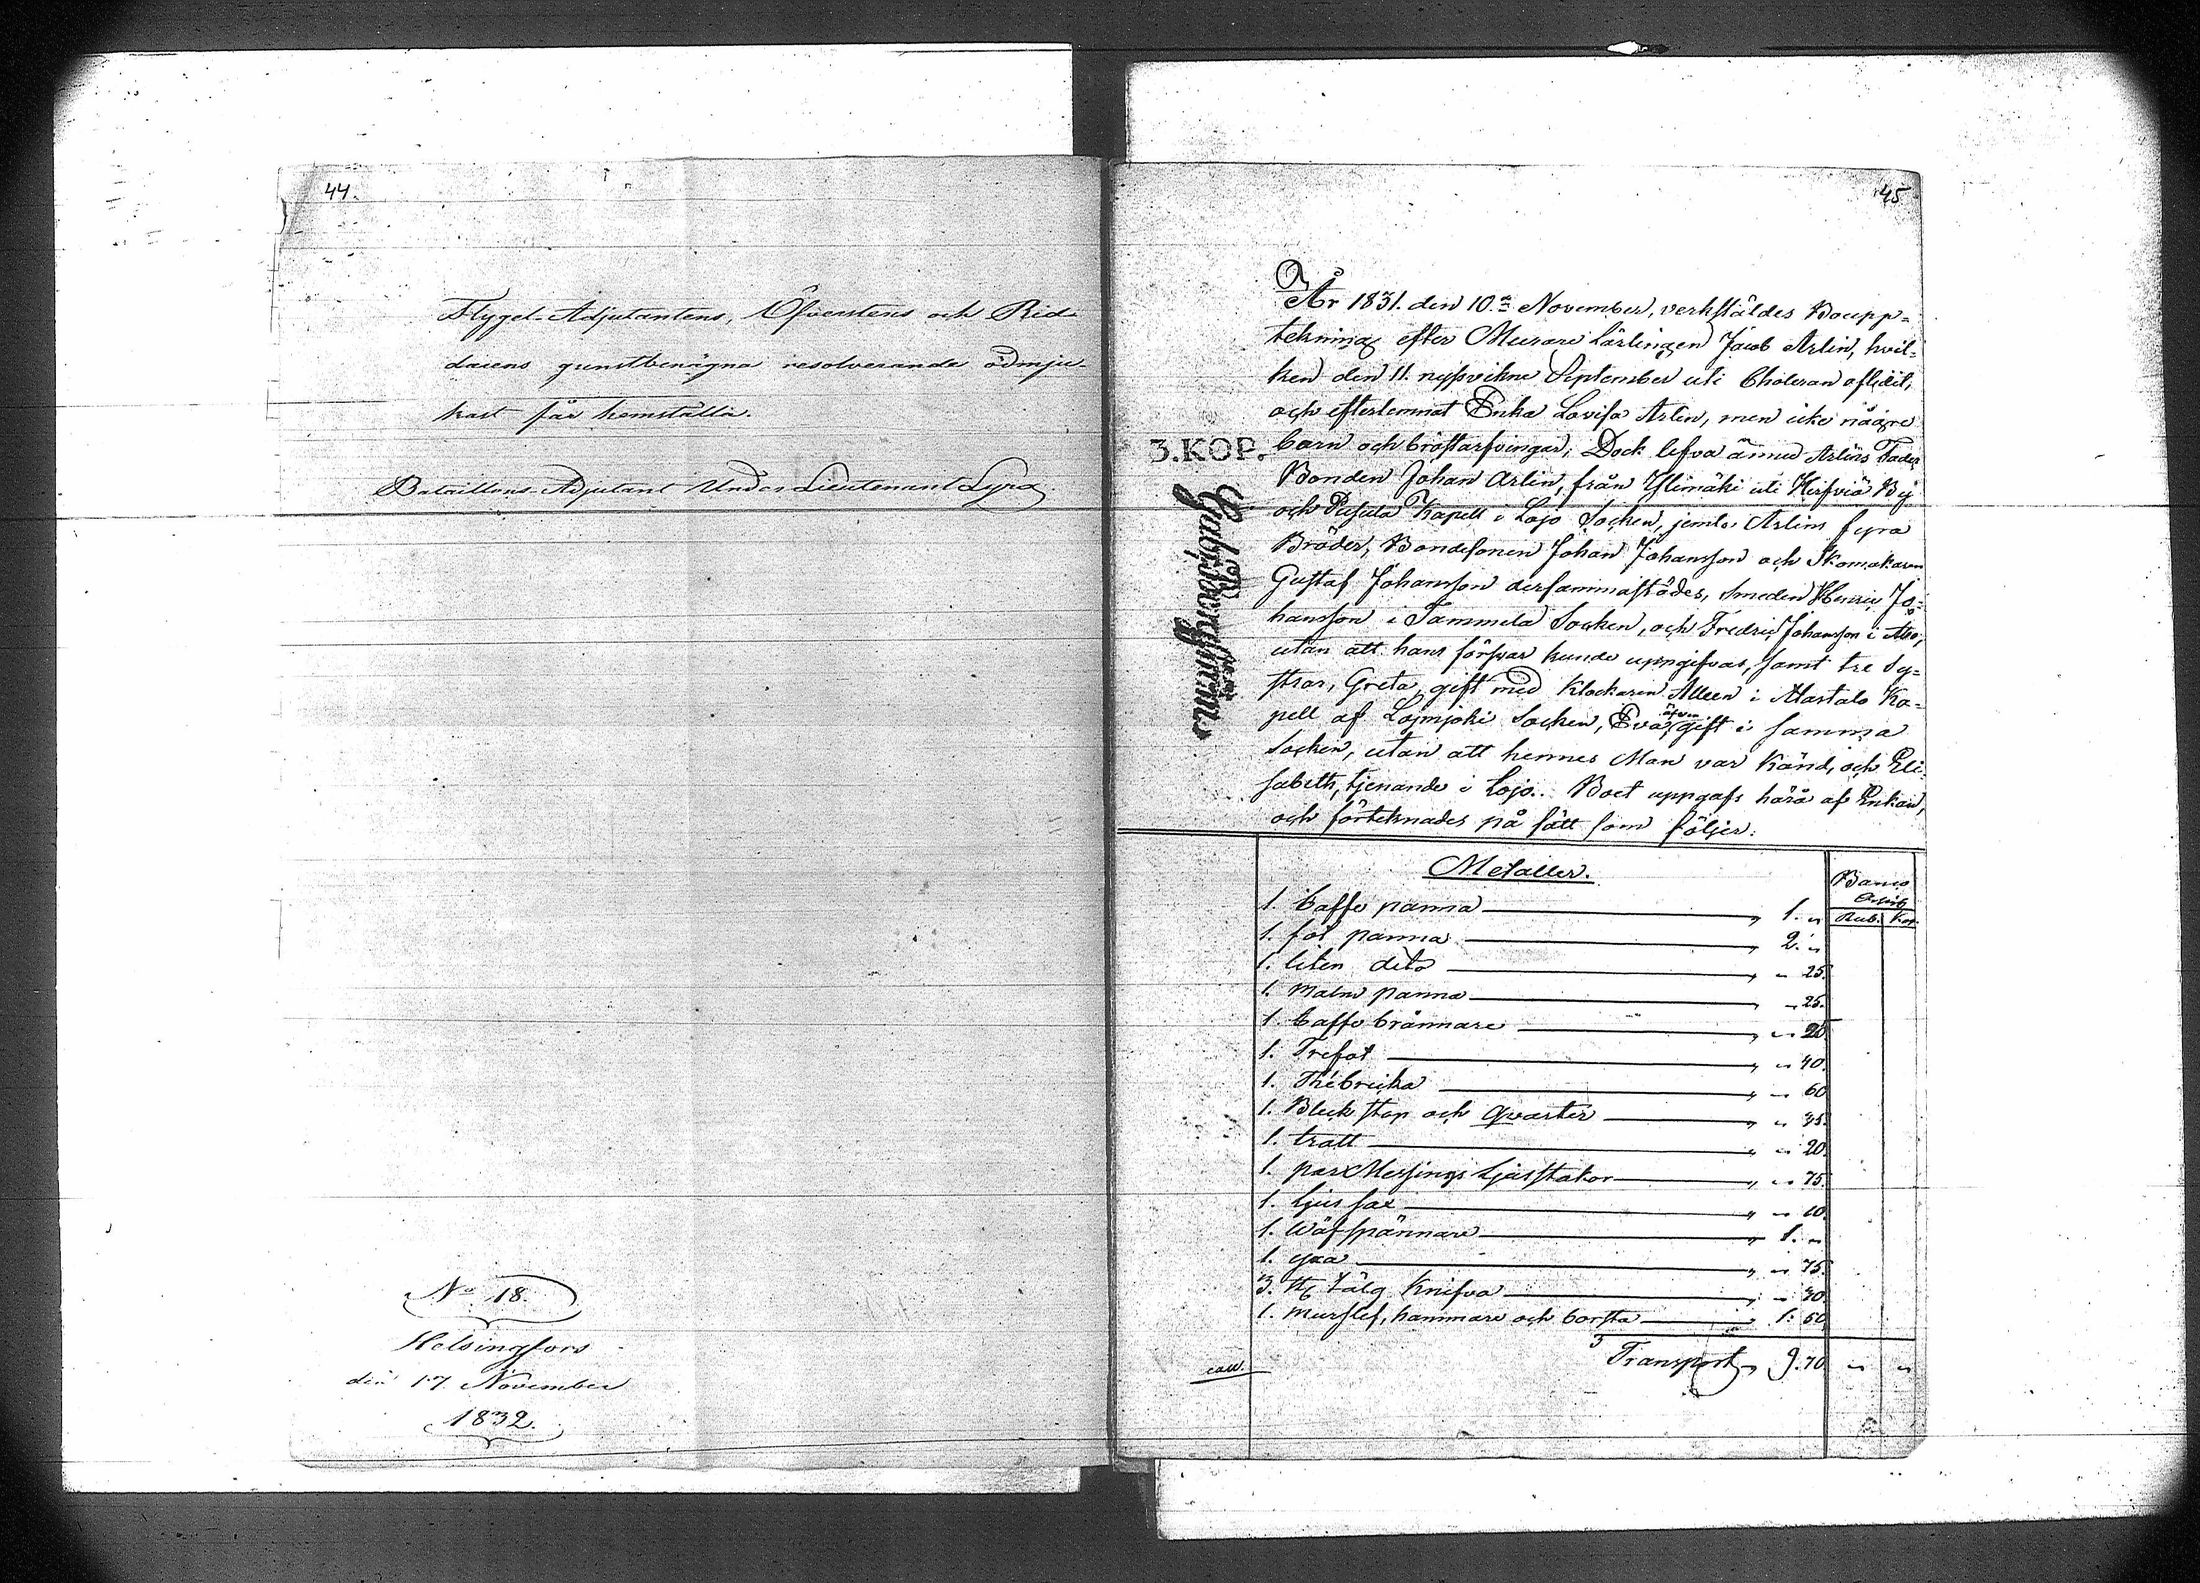 44.
Flygel-Adjutantens, Öfverstens och Rid-
darens gunstbenägna resolverande ödmju-
kast får hemställa.
Bataillons-Adjutant Under Lieutenant Lyra
No 18.
Helsingfors
den 17. November
1832.
45
År 1831. den 10de November, verkställdes Boupp=
tekning efter Murare Lärlingen Jacob Arlin, hvil=
ken den 11. nyssvikne September uti Choleran aflidit,
och efterlemnat Enka Lovisa Arlin, men icke någre
3.KOP.
barn och bröstarfvingar; Dock lefva ännu Arlins Fader
Bonden Johan Arlin, från Ylimäki uti Hirfviö By
och Pusula Kapell i Lojo Socken, jemte Arlins fyra
Bröder, Bondesonen Johan Johansson och Skomakaren
Gustaf Johansson dersammastädes, Smeden Henric Jo=
hansson i Tammela Socken, och Fredric Johansson i Åbo,
utan att hans förswar kunde uppgifvas, samt tre Sy=
strar, Greta, gift med Klockaren Alleen i Mastalo Ka=
pell af Loimjoki Socken, Eva, äfven gift i samma
Socken, utan att hennes Man var känd, och Eli=
sabeth, tjenande i Lojo. Boet uppgafs härå af Enkan,
och förteknades på sätt som följer:
Metaller.
Banco
Assig
Rub. Kop.
1. Caffe panna " 1. "
1. fot panna " 2. "
1. liten dito " " 25.
1. Malm panna " 25.
1. Caffe brännare " " 20
1. Trefot " " 40.
1. Thébricka " " 60
1. Bleck stop och qvarter " " 35.
1. tratt " " 20.
1. par Messings Ljusstakar " " 75.
1. Ljus sax " " 10.
1. Wäfspännare " 1. "
1. yxa " " 75.
3. st Tälg Knifva " " 30.
1. Murslef, hammare och borsta " 1: 50
Transport " 9.70. " "